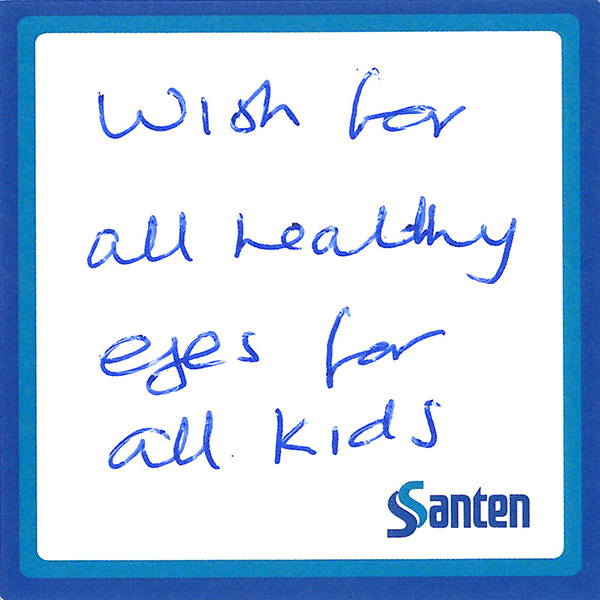 Wish for
all healthy
eyes for
all kids
Santen